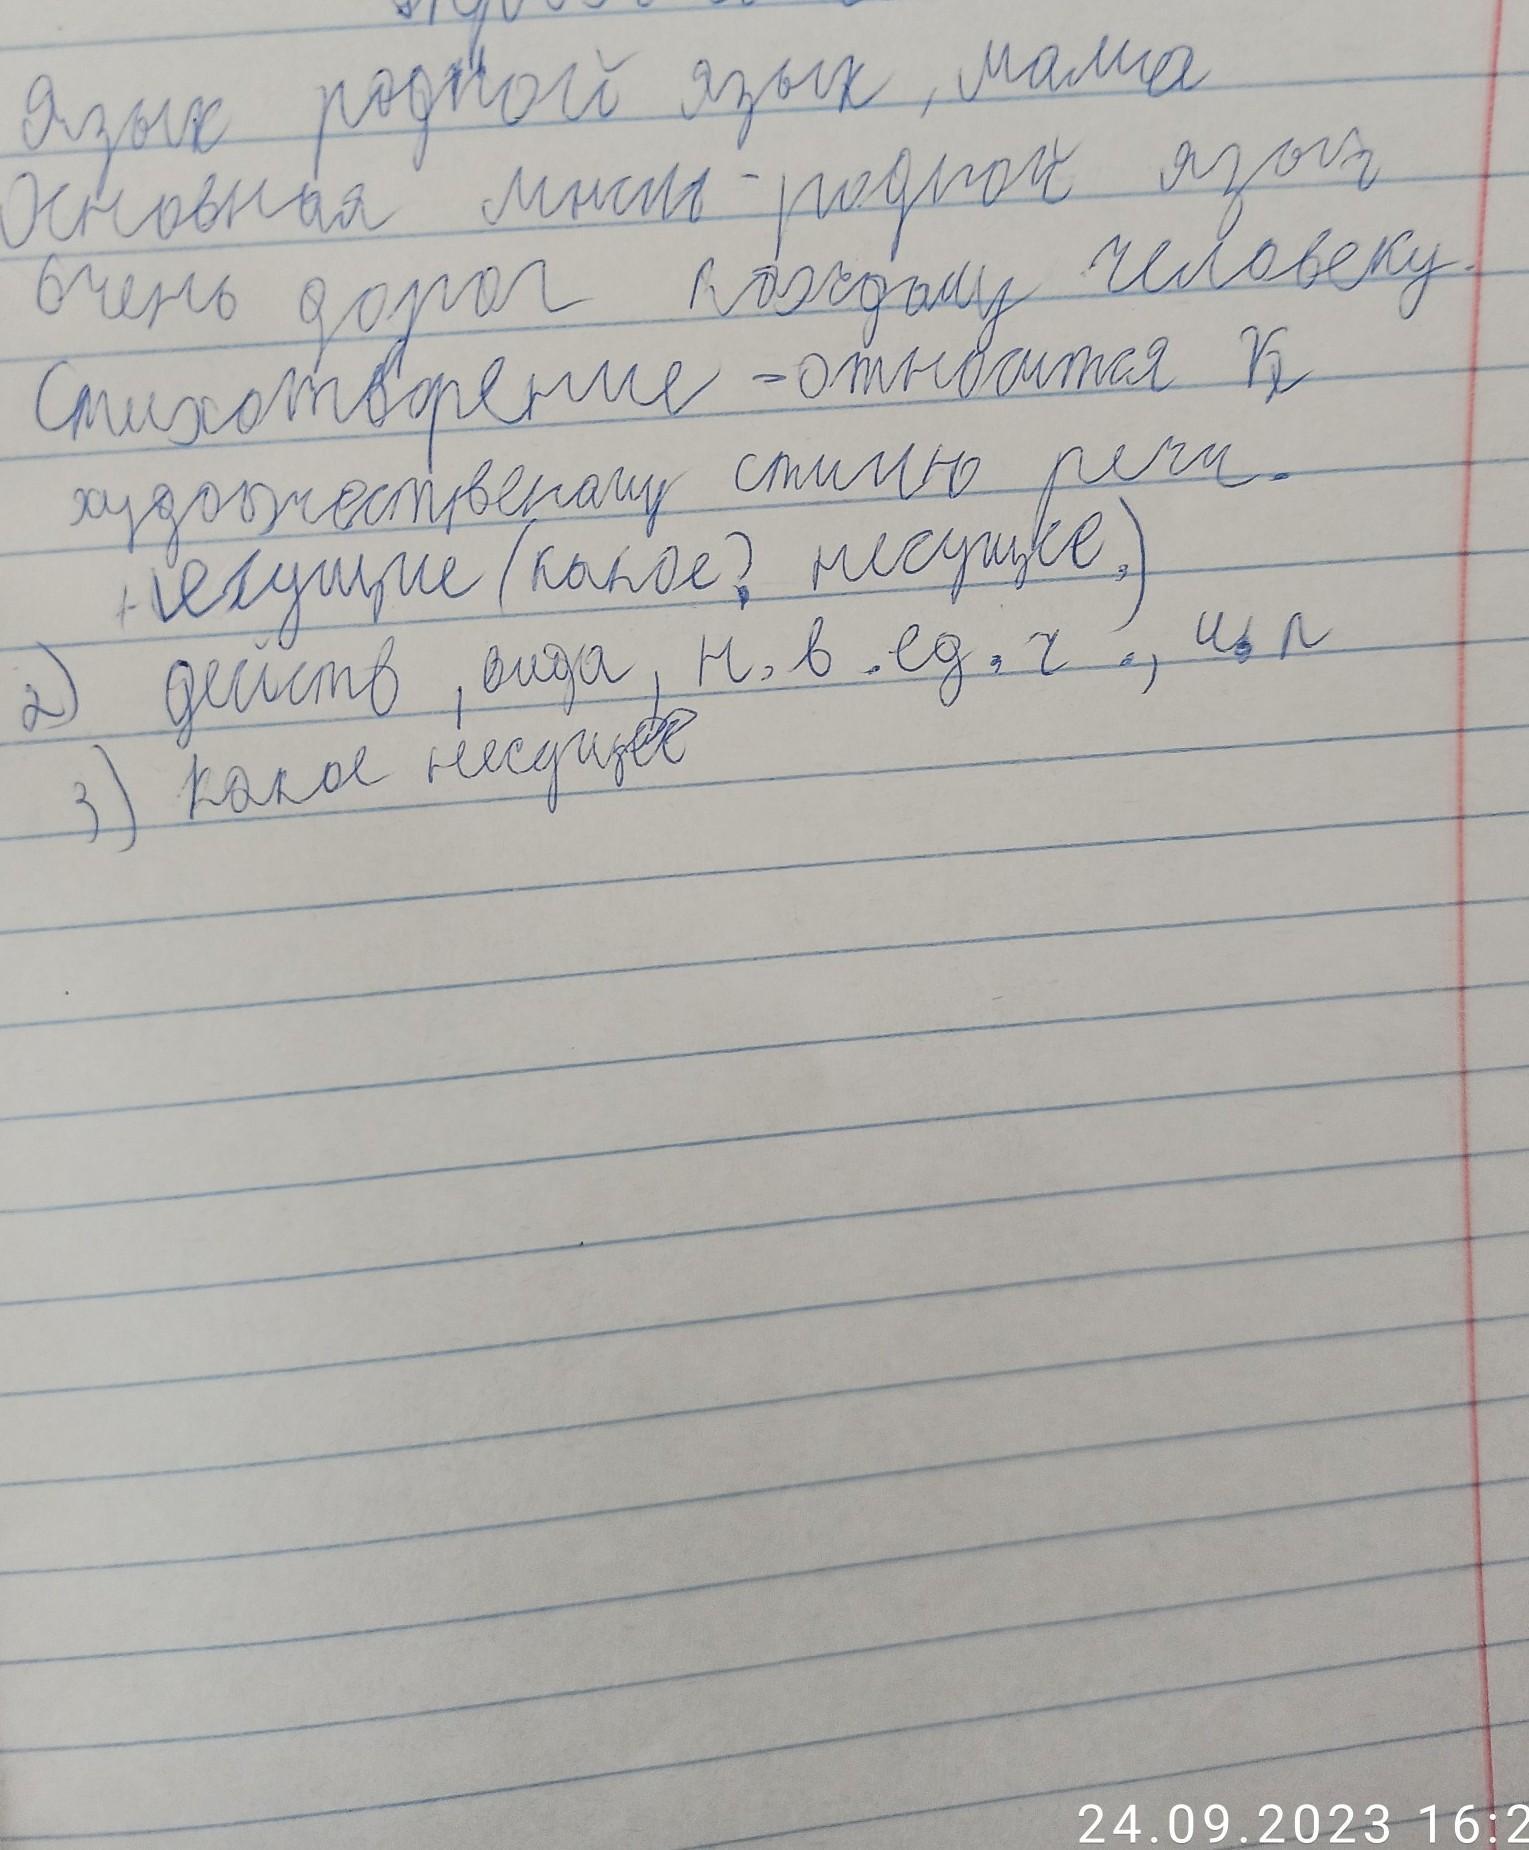 Язык родной язык, мама
Основная мысль - родной язык
очень дорог каждому человеку.
Стихотворение - относится к
художественому стилю речи.
несущие (какое? несущее.)
2) действ, вида, н.в.ед.ч., и.п
3) какое несущее
24.09.2023 16:2